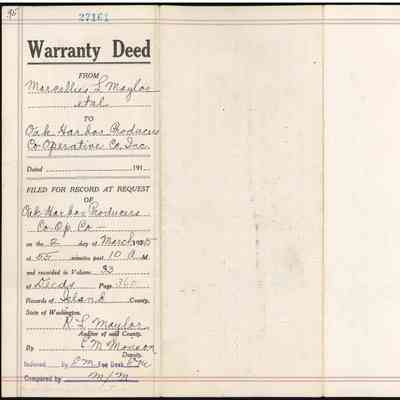 27161
Warranty Deed
FROM
Marcellus L Maylor
et al
TO
Oak Harbor Producers
Co Operative Co. Inc.
Dated 191
FILED FOR RECORD AT REQUEST
OF
Oak Harbor Producers
Co-Op. Co -
on the 2 day of March 1925
at 55 minutes past 10 A M.
and recorded in Volume 33
of Deeds Page 360
Records of Island County,
State of Washington.
R. L. Maylor
Auditor of said County.
By E M Monson
Deputy.
Indexed by E M Fee Book
Compared by M/M